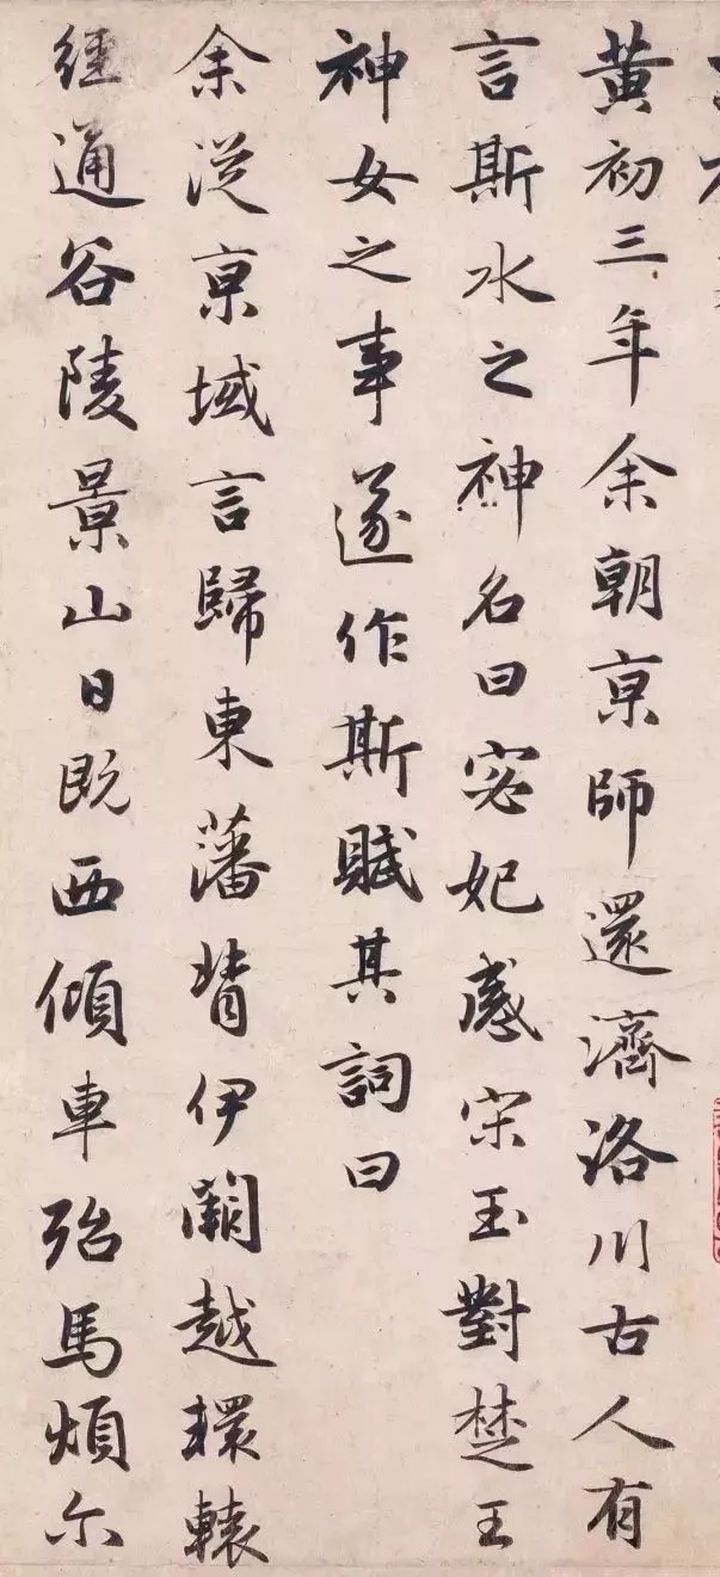 黄初三年余朝京師還濟洛川古人有
言斯水之神名曰宓妃感宋玉對楚王
神女之事遂作斯賦其詞曰
余從京域言歸東藩背伊闕越轘轅
經通谷陵景山日既西傾車殆馬煩尔